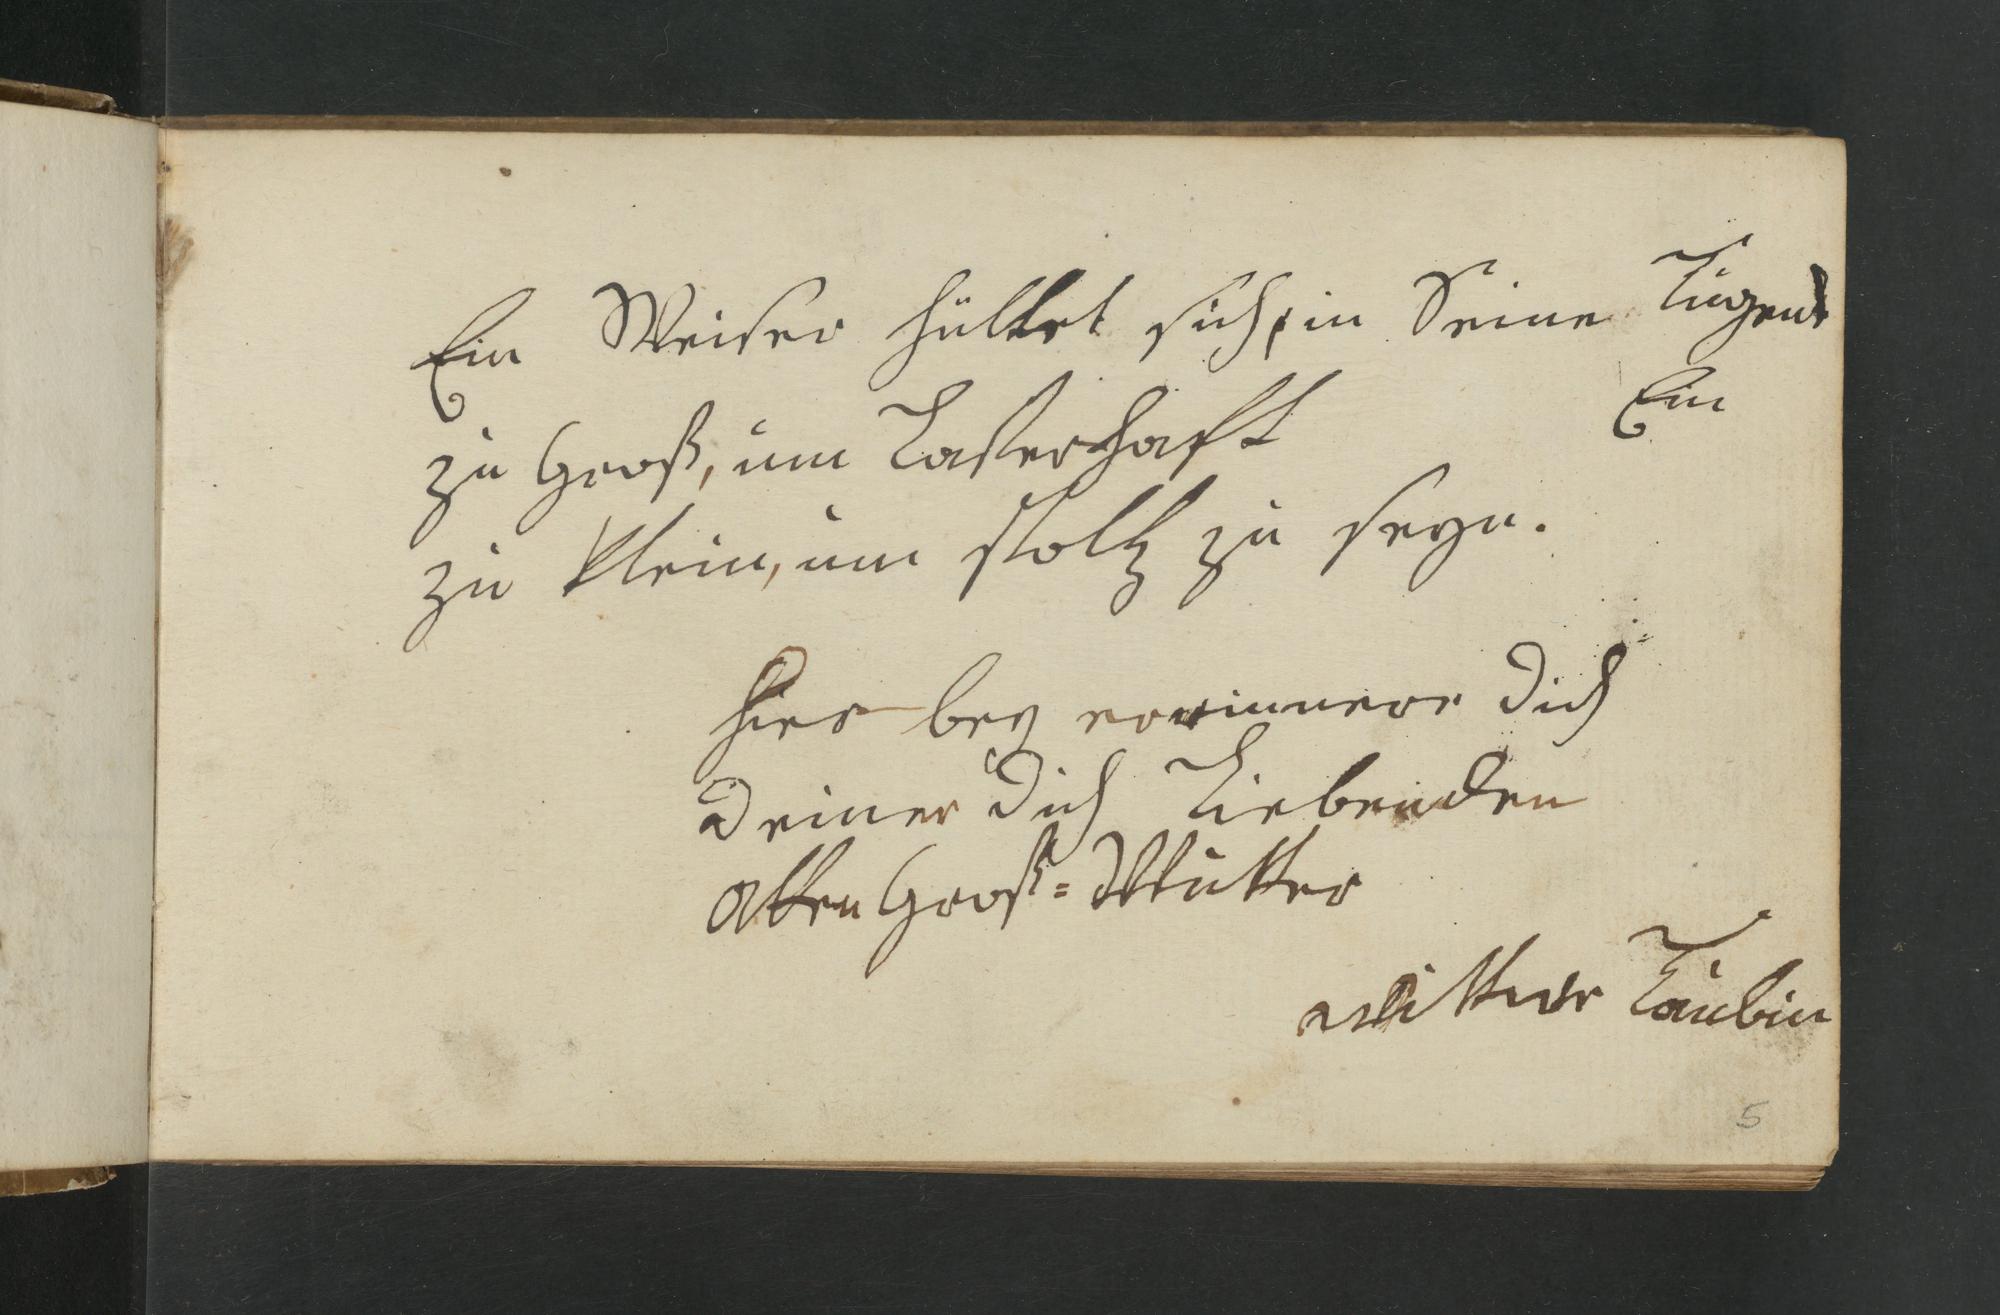 Ein Weiser hüllet sich, in Seine Tugend
Ein
zu Groß, um Lasterhaft
zu klein, um stoltz zu seyn.
hier bey errinnere dich
deiner dich Liebenden
alten Groß=Mutter
wittwe Täubin
5